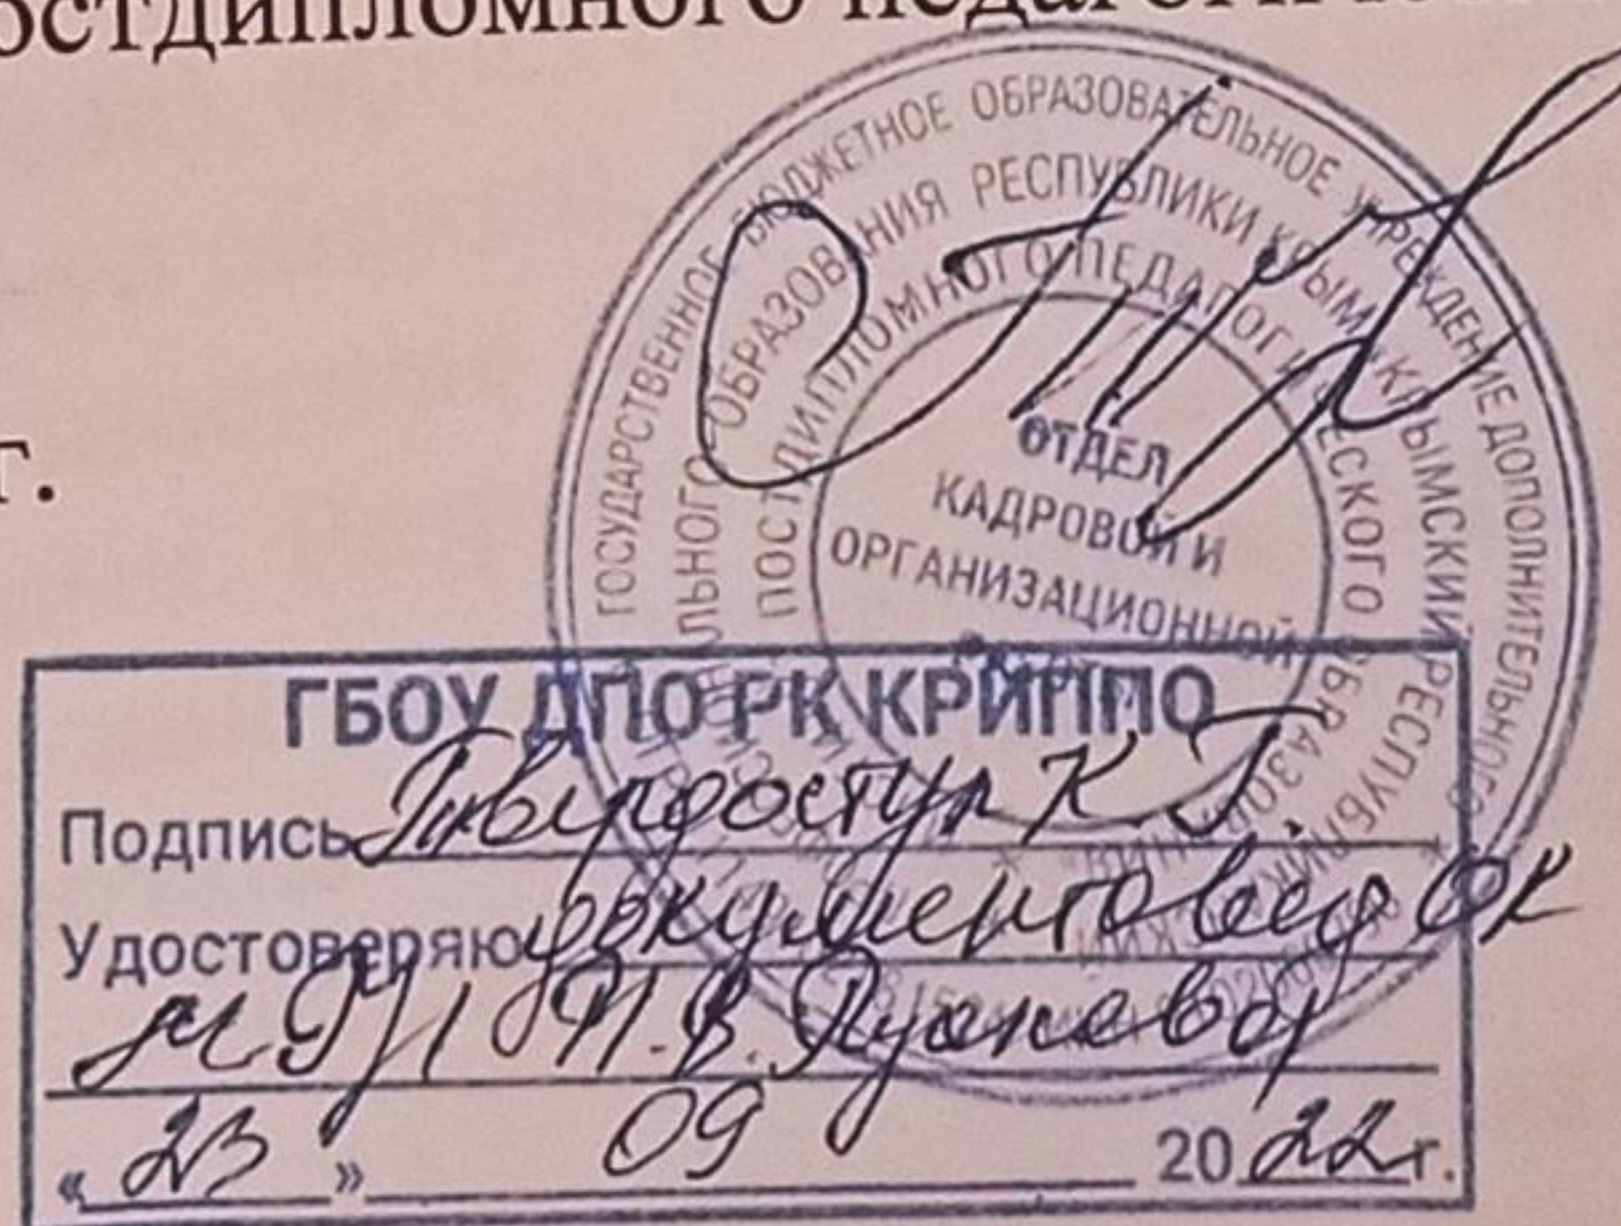 остдипломного педагогическ
ГОСУДАРСТВЕННОЕ БЮДЖЕТНОЕ ОБРАЗОВАТЕЛЬНОЕ УЧРЕЖДЕНИЕ ДОПОЛНИТЕЛЬНОГО
ЛЬНОГО ОБРАЗОВАНИЯ РЕСПУБЛИКИ КРЫМ "КРЫМСКИЙ РЕСПУБЛИК
ПОСТДИПЛОМНОГО ПЕДАГОГИЧЕСКОГО ОБРАЗОВАНИЯ"
г.
ОТДЕЛ
КАДРОВОЙ И
ОРГАНИЗАЦИОННОЙ
ГБОУ ДПО РК КРИППО
Подпись Твердоступ К. Г.
Удостоверяю документовед ОК
Н.В.
« 23 » 09 2022 г.